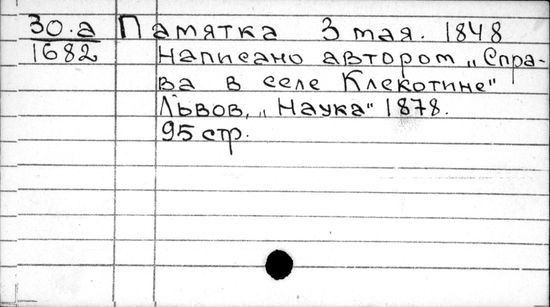 30.а Памятка 3 мая. 1848
1682 Написано автором „Спра-
ва в селе Клекотине"
Львов, „Наука" 1878.
95 стр.